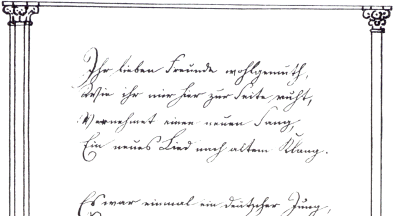 Ihr lieben Freunde wohlgemuth,
Die ihr mir hier zur Seite ruht,
Vernehmet einen neuen Sang,
Ein neues Lied nach altem Klang.
Es war einmal ein deutscher Jung,